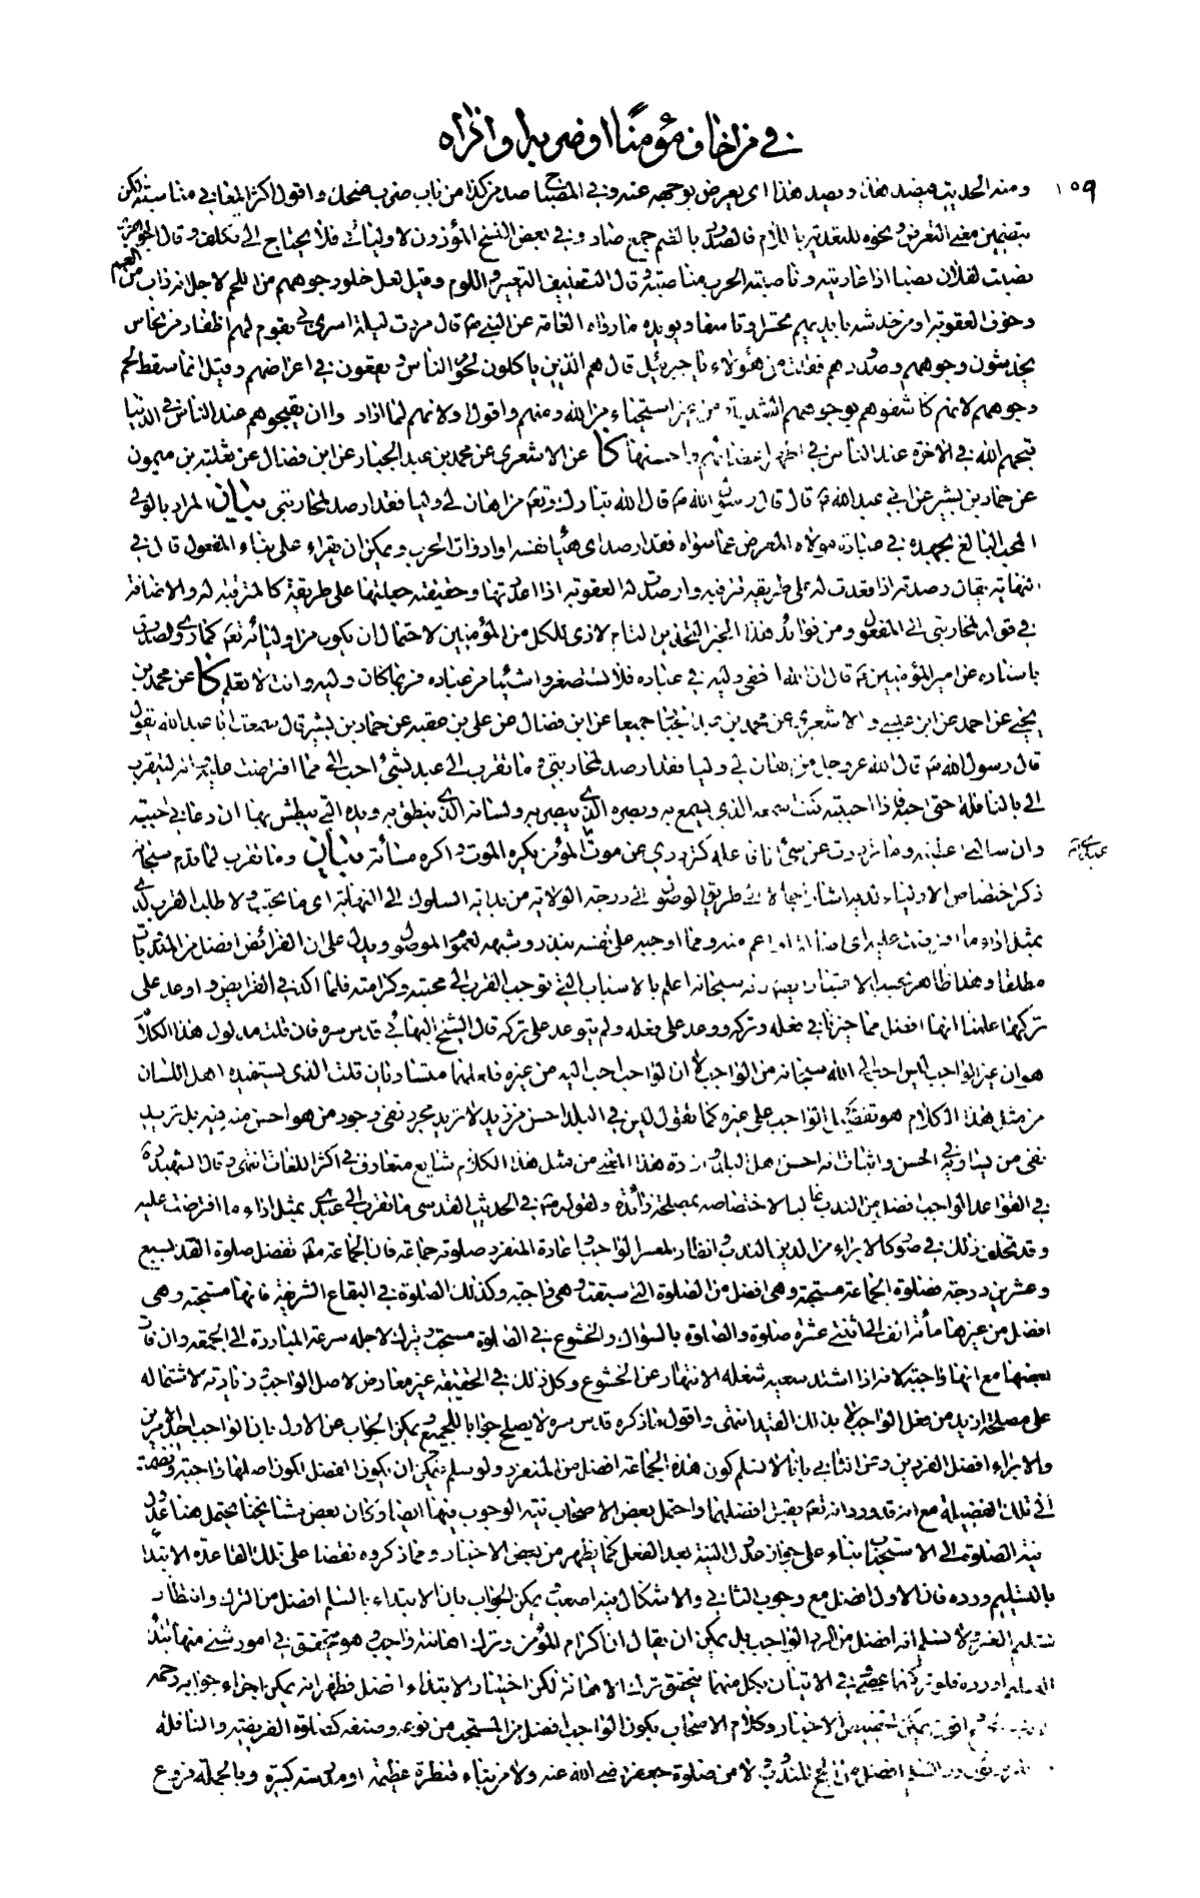 في من اخاف مؤمنا او ضربه او اذاه
١٥٩
ومنه الحديث فيصد هذا ويصد هذا اى يعرض بوجهه عنه وفي المصباح صد من كذا من باب ضرب ضحك واقول اكثر المعاني مناسبة لكن
بتضمين معنى التعرض ونحوه للتعدية باللام فالصدود بالضم جمع صاد وفي بعض النسخ المؤذون لاوليائى فلا يحتاج الى تكلف وقال الجوهرى
نصبت لفلان نصبا اذا عاديته وناصبته الحرب مناصبة وقال التعنيف التعيير واللوم وقيل لعل خلو وجوههم من اللحم لاجل انه ذاب من الغم
وخوف العقوبة او من خدشه بايديهم تحسرا وتاسفا ويؤيده ما رواه العامة عن النبي ص قال مررت ليلة اسرى بي بقوم لهم اظفار من نحاس
يخدشون وجوههم وصدورهم فقلت من هؤلاء يا جبرئيل قال هم الذين ياكلون لحوم الناس ويقعون في اعراضهم وقيل انما سقط لحم
وجوههم لانهم كاشفوهم بوجوههم الشديدة من غير استحياء من الله ومنهم واقول ولانهم لما ارادوا ان يقبحوهم عند الناس في الدنيا
قبحهم الله في الاخرة عند الناس في اظهر اعضائهم واحسنها كا عن الاشعرى عن محمد بن عبد الجبار عن ابن فضال عن ثعلبة بن ميمون
عن حماد بن بشير عن ابي عبد الله ع قال قال رسول الله ص قال الله تبارك وتعالى من اهان لي وليا فقد ارصد لمحاربتي بيان المراد بالولي
المحب البالغ بجهده في عبادة مولاه المعرض عما سواه فقد ارصد اى هيا نفسه او ادوات الحرب ويمكن ان يقراء على بناء المفعول قال في
النهاية يقال رصدته اذا قعدت له على طريقه تترقبه وارصدت له العقوبة اذا اعددتها وحقيقته جعلتها على طريقه كالمترقبة له والاضافة
في قوله لمحاربتي الى المفعول ومن فوائد هذا الخبر التحذير التام لاذى لكل من المؤمنين لاحتمال ان يكون من اوليائه تعالى كما روى الصدوق
باسناده عن امير المؤمنين ع قال ان الله اخفى وليه في عباده فلا تستصغروا شيئا من عباده فربما كان وليه وانت لا تعلم كا عن محمد بن
يحيى عن احمد عن ابن عيسى والاشعري عن محمد بن عبد الجبار جميعا عن ابن فضال عن على بن عقبه عن حماد بن بشير قال سمعت ابا عبد الله يقول
قال رسول الله ص قال الله عز وجل من اهان لي وليا فقد ارصد لمحاربتي وما تقرب الى عبد بشئ احب الى مما افترضت عليه وانه ليتقرب
الى بالنافلة حتى احبه فاذا احببته كنت سمعه الذي يسمع به وبصره الذي يبصر به ولسانه الذي ينطق به ويده التي يبطش بها ان دعاني اجبته
وان سالني اعطيته وما ترددت عن شئ انا فاعله كترددي عن موت المؤمن يكره الموت واكره مسائته بيان وما تقرب لما قدم سبحانه
ذكر اختصاص الاولياء لديه اشار اجمالا الى طريق الوصول الى درجة الولاية من بداية السلوك الى النهاية اى ما تحبب ولا طلب القرب لدي
بمثل اداء ما افترضت عليه اى اصالة او اعم منه ومما اوجبه على نفسه بنذر وشبهه لعموم الموصول ويدل على ان الفرائض افضل من المندوبات
مطلقا وهذا ظاهر بحسب الاعتبار ايضا فانه سبحانه اعلم بالاسباب التي توجب القرب الى محبته وكرامته فلما اكد في الفرايض واوعد على
تركها علمنا انها افضل مما خيرنا في فعله وتركه ووعد على فعله ولم يتوعد على تركه قال الشيخ البهائى قدس سره فان قلت مدلول هذا الكلام
هو ان غير الواجب ليس احب الى الله سبحانه من الواجب لا ان الواجب احب اليه من غيره فلعلهما متساويان قلت الذى يستفيده اهل اللسان
من مثل هذا الكلام هو تفضيل الواجب على غيره كما تقول ليس في البلد احسن من زيد لا تريد مجرد نفى وجود من هو احسن منه فيه بل تريد
نفى من يساويه في الحسن واثبات انه احسن اهل البلد وارادة هذا المعنى من مثل هذا الكلام شايع متعارف في اكثر اللغات انتهى وقال الشهيد ره
في القواعد الواجب افضل من الندب غالبا لاختصاصه بمصلحة زائدة ولقوله تعالى في الحديث القدسي ما تقرب الى عبدي بمثل اداء ما افترضت عليه
وقد تخلف ذلك في صور كالابراء من الدين الندب وانظار المعسر الواجب واعادة المنفرد صلوته جماعة فان الجماعة مطلقا تفضل صلوة الفذ بسبع
وعشرين درجة فصلوة الجماعة مستحبة وهي افضل من الصلوة التى سبقت وهي واجبة وكذلك الصلوة في البقاع الشريفة فانها مستحبة وهى
افضل من غيرها مائة الف الى اثنتى عشرة صلوة والصلوة بالسواك والخشوع في الصلوة مستحب ويترك لاجله سرعة المبادرة الى الجمعة وان فات
بعضها مع انها واجبة لانه اذا اشتد سعيه شغله الانبهار عن الخشوع وكل ذلك في الحقيقة غير معارض لاصل الواجب وزيادته لاشتماله
على مصلحة ازيد من فعل الواجب لا بذلك القيد انتهى واقول ما ذكره قدس سره لا يصلح جوابا للجميع ويمكن الجواب عن الاول بان الواجب احد الامرين
والابراء افضل الفردين وعن الثاني بانا لا نسلم كون هذه الجماعة افضل من المنفرد ولو سلم فيمكن ان يكون الفضل لكون اصلها واجبة وانضمت
الى تلك الفضيلة مع انه قد ورد انه تعالى يقبل افضلهما واحتمل بعض الاصحاب نية الوجوب فيها ايضا وكان بعض مشايخنا يحتمل هنا عدول
نية الصلوة الى الاستحباب بناء على جواز عدول النية بعد الفعل كما يظهر من بعض الاخبار ومما ذكروه نقضا على تلك القاعدة الابتداء
بالتسليم ورده فان الاول افضل مع وجوب الثاني والاشكال فيه اصعب ويمكن الجواب بان الابتداء بالسلم افضل من الترك وانتظار
تسليم الغير ولا نسلم انه افضل من الرد الواجب بل يمكن ان يقال ان اكرام المؤمن وترك اهانته واجب وهو يتحقق في امور شتى منها ابتداء
التسليم او رده فلو تركهما عصى وفي الاتيان بكل منهما يتحقق ترك الاهانة لكن اختيار الابتداء افضل فظهر انه يمكن اجراء جوابه رحمه
الاخبار وكلام الاصحاب بكون الواجب افضل من المستحب من نوعه وصنفه كصلوة الفريضة والنافلة
افضل من الحج المندوب لا من صلوة جعفر رضي الله عنه ولا من بناء قنطرة عظيمة او مدرسة كبيرة وبالجملة فروع